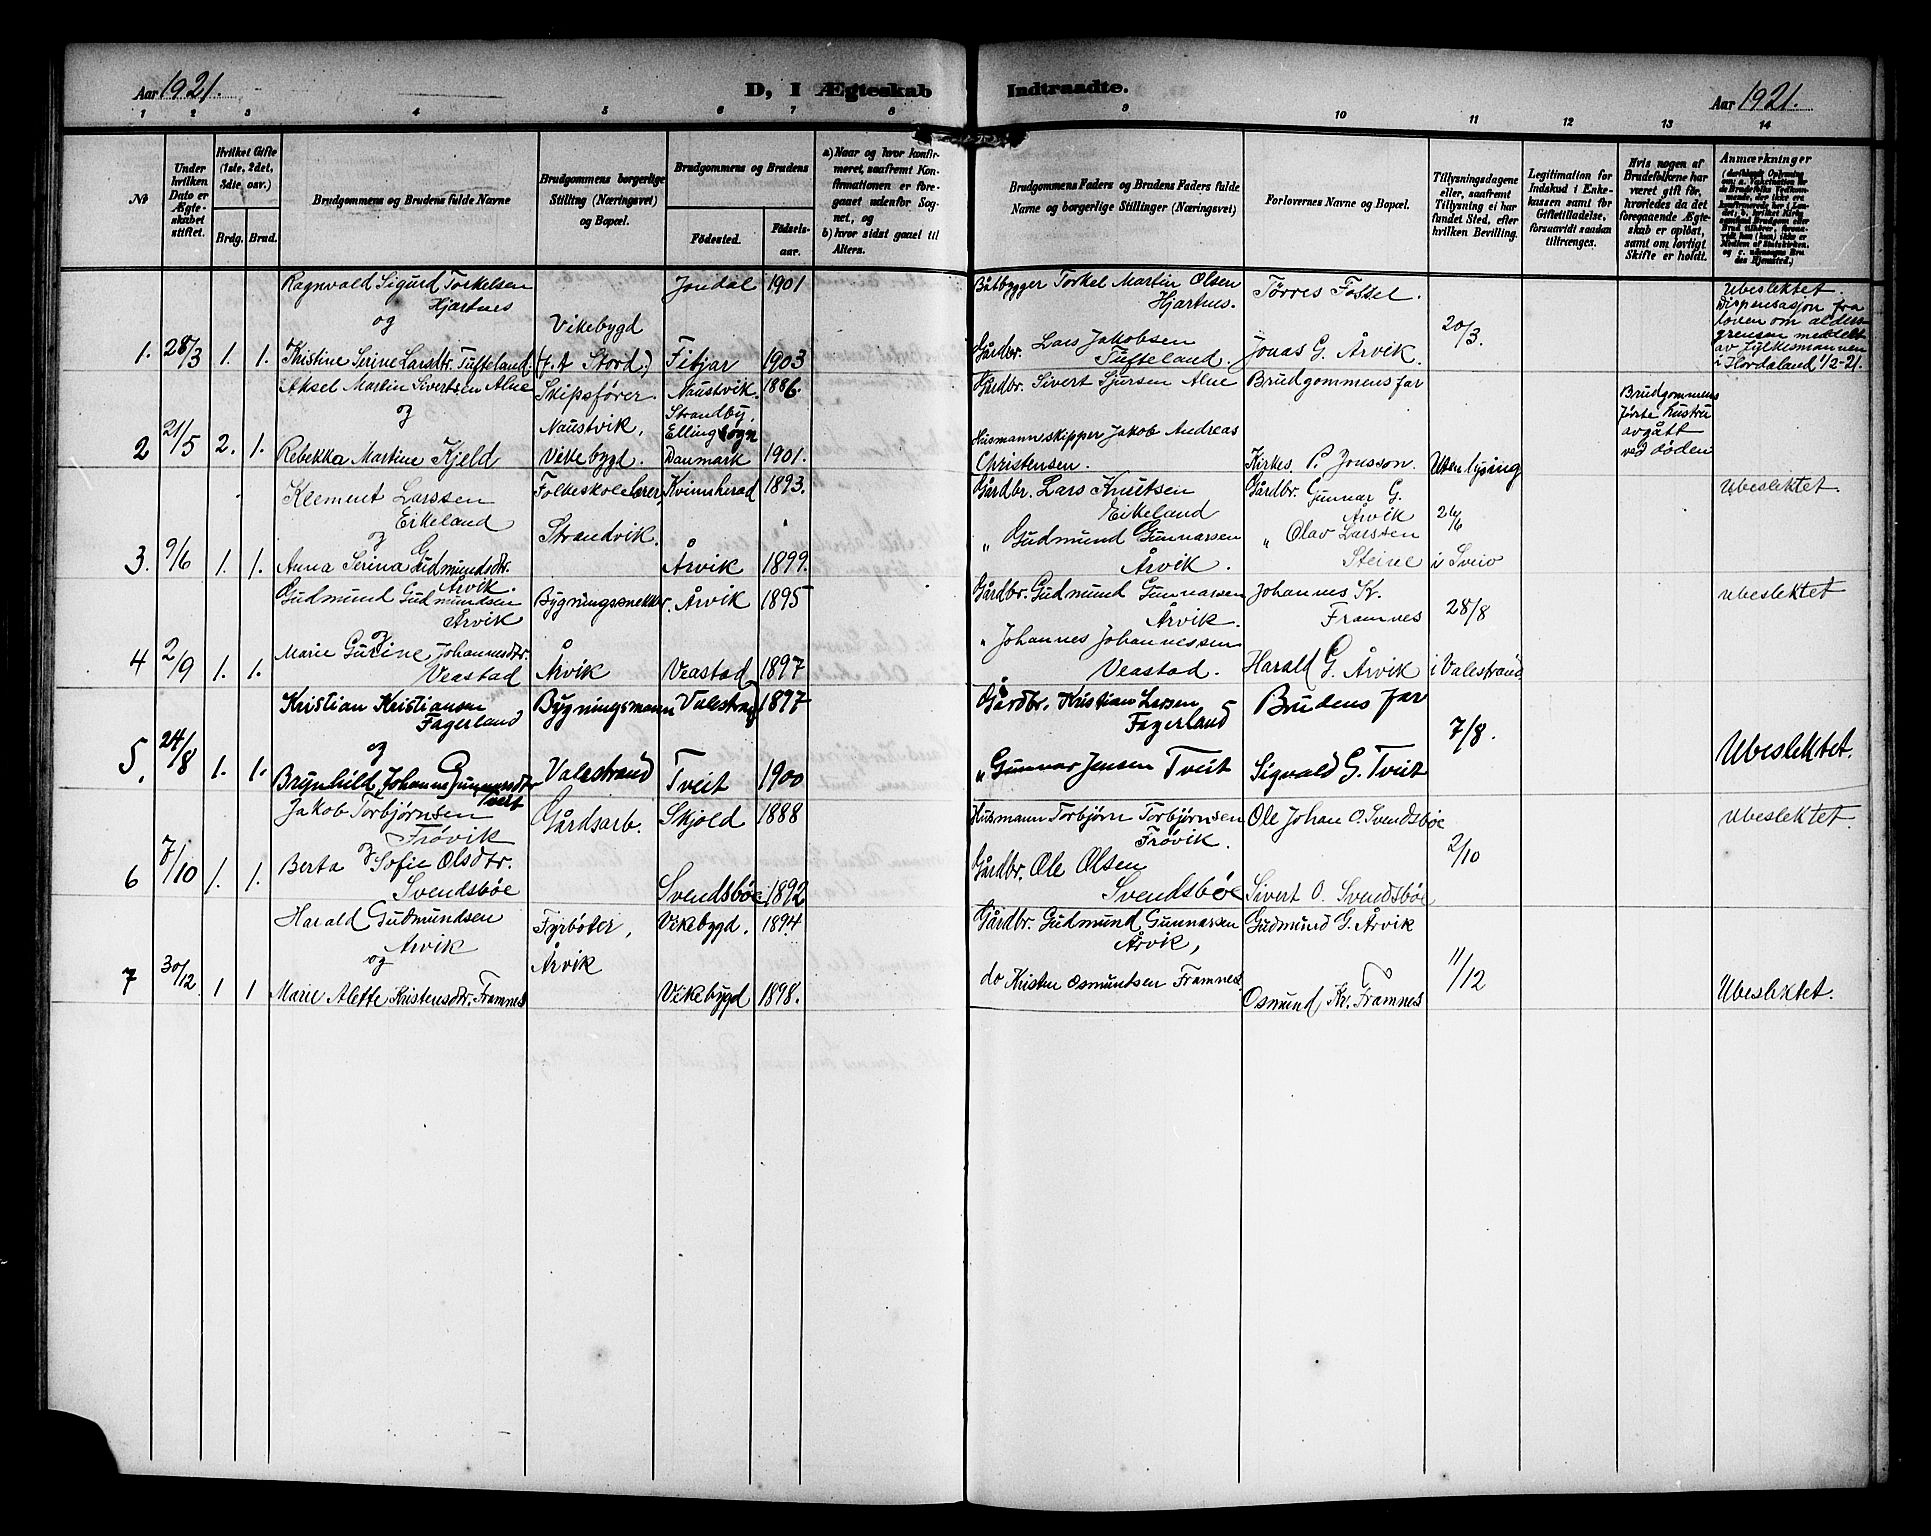 Aar 1921.
D, I Ægteskab Indtraadte.
Aar 1921.
1 2 3 4 5 6 7 8 9 10 11 12 13 14
No
Under hvilken Dato er Ægteskabet stiftet.
Hvilket Gifte (1ste, 2det, 3die osv.)
Brdg. Brud.
Brudgommens og Brudens fulde Navne
Brudgommens borgerlige Stilling (Næringsvei) og Bopæl.
Brudgommens og Brudens
Födested.
Födselsaar.
a) Naar og hvor konfirmeret, saafremt Konfirmationen er foregaaet udenfor Sognet, og
b) hvor sidst gaaet til Alters.
Brudgommens Faders og Brudens Faders fulde Navne og borgerlige Stillinger (Næringsvei)
Forlovernes Navne og Bopæl.
Tillysningsdagene eller, saafremt Tillysning ei har fundet Sted, efter hvilken Bevilling.
Legitimation for Indskud i Enkekassen samt for Giftetilladelse, forsaavidt saadan tiltrænges.
Hvis nogen af Brudefolkene har været gift för, hvorledes da det foregaaende Ægteskab er oplöst, samt om lovligt Skifte er holdt.
Anmærkninger
1. 28/3 1. 1.
Ragnvald Sigurd Torkelsen
Hjartnes
og
Kristine Serine Larsdtr. Tufteland.
Vikebygd
(f. A Stord.)
Jondal 1901
Fitjar 1903
Båtbygger Torkel Martin Olsen
Hjartnes.
Gårdbr. Lars Jakobsen
Tufteland.
Tørres Fossel.
Jonas G. Årvik.
20/3.
Ubeslektet.
Dispensasjon fra
loven om alders-
grensen meddelt
av Fylkesmannen
i Hordaland 1/2-21.
2 21/5 2. 1.
Aksel Martin Sivertsen Alne
og
Rebekka Martine Kjeld
Skipsfører.
Naustvik,
Vikebygd.
Naustvik. 1886.
Strandby,
Elling sogn
Danmark 1901.
Gårdbr. Sivert Sjursen Alne
Husmann skipper Jakob Andreas
Christensen.
Brudgommens far
Kirkes. P. Jonsson.
Uten lysing
Brudgommens
første hustru
avgått
ved døden
3. 9/6 1. 1.
Klement Larssen
Eikeland
og
Anna Serina Gudmundsdtr.
Årvik.
Folkeskolelærer,
Strandvik.
Kvinnherad 1893.
Årvik 1899.
Gårdbr. Lars Knutsen
Eikeland
„ Gudmund Gunnarsen
Årvik.
Gårdbr. Gunnar G.
Årvik
„ Olav Larssen
Steine
26/6
i Sveio
Ubeslektet.
4 2/9 1. 1.
Gudmund Gudmundsen
Årvik
og
Marie Gurine Johannesdtr.
Veastad
Bygningssnekker.
Årvik
Årvik 1895
Veastad 1897
Gårdbr. Gudmund Gunnarsen
Årvik.
„ Johannes Johannessen
Veastad.
Johannes K.
Framnes
Harald G. Årvik
28/8
i Valestrand
Ubeslektet
5. 24/8 1. 1.
Kristian Kristiansen
Fagerland
og
Brynhild Johanne Gunnarsdtr
Tveit
Bygningsmann
Valestrand
Valestrand 1897
Tveit 1900
Gårdbr. Kristian Larsen
Fagerland
„ Gunnar Jensen Tveit
Brudens far
Sigvald G. Tveit
7/8.
Ubeslektet.
6 7/10 1. 1.
Jakob Torbjørnsen
Frøvik
og
Berta Sofie Olsdtr.
Svendsbøe
Gårdsarb.
Skjold 1888
Svendsbøe 1892
Husmann Torbjørn Torbjørnsen
Frøvik.
Gårdbr. Ole Olsen
Svendsbøe
Ole Johan O. Svendsbøe
Sivert O. Svendsbøe
2/10
Ubeslektet.
7 30/12 1 1
Harald Gudmundsen
Årvik
og
Marie Alette Kristensdtr. Framnes
Fyrbøter,
Årvik
Vikebygd. 1894
Vikebygd 1898.
Gårdbr. Gudmund Gunnarsen
Årvik,
do Kristen Osmundsen Framnes.
Gudmund G. Årvik
Osmund Kr. Framnes
11/12
Ubeslektet.